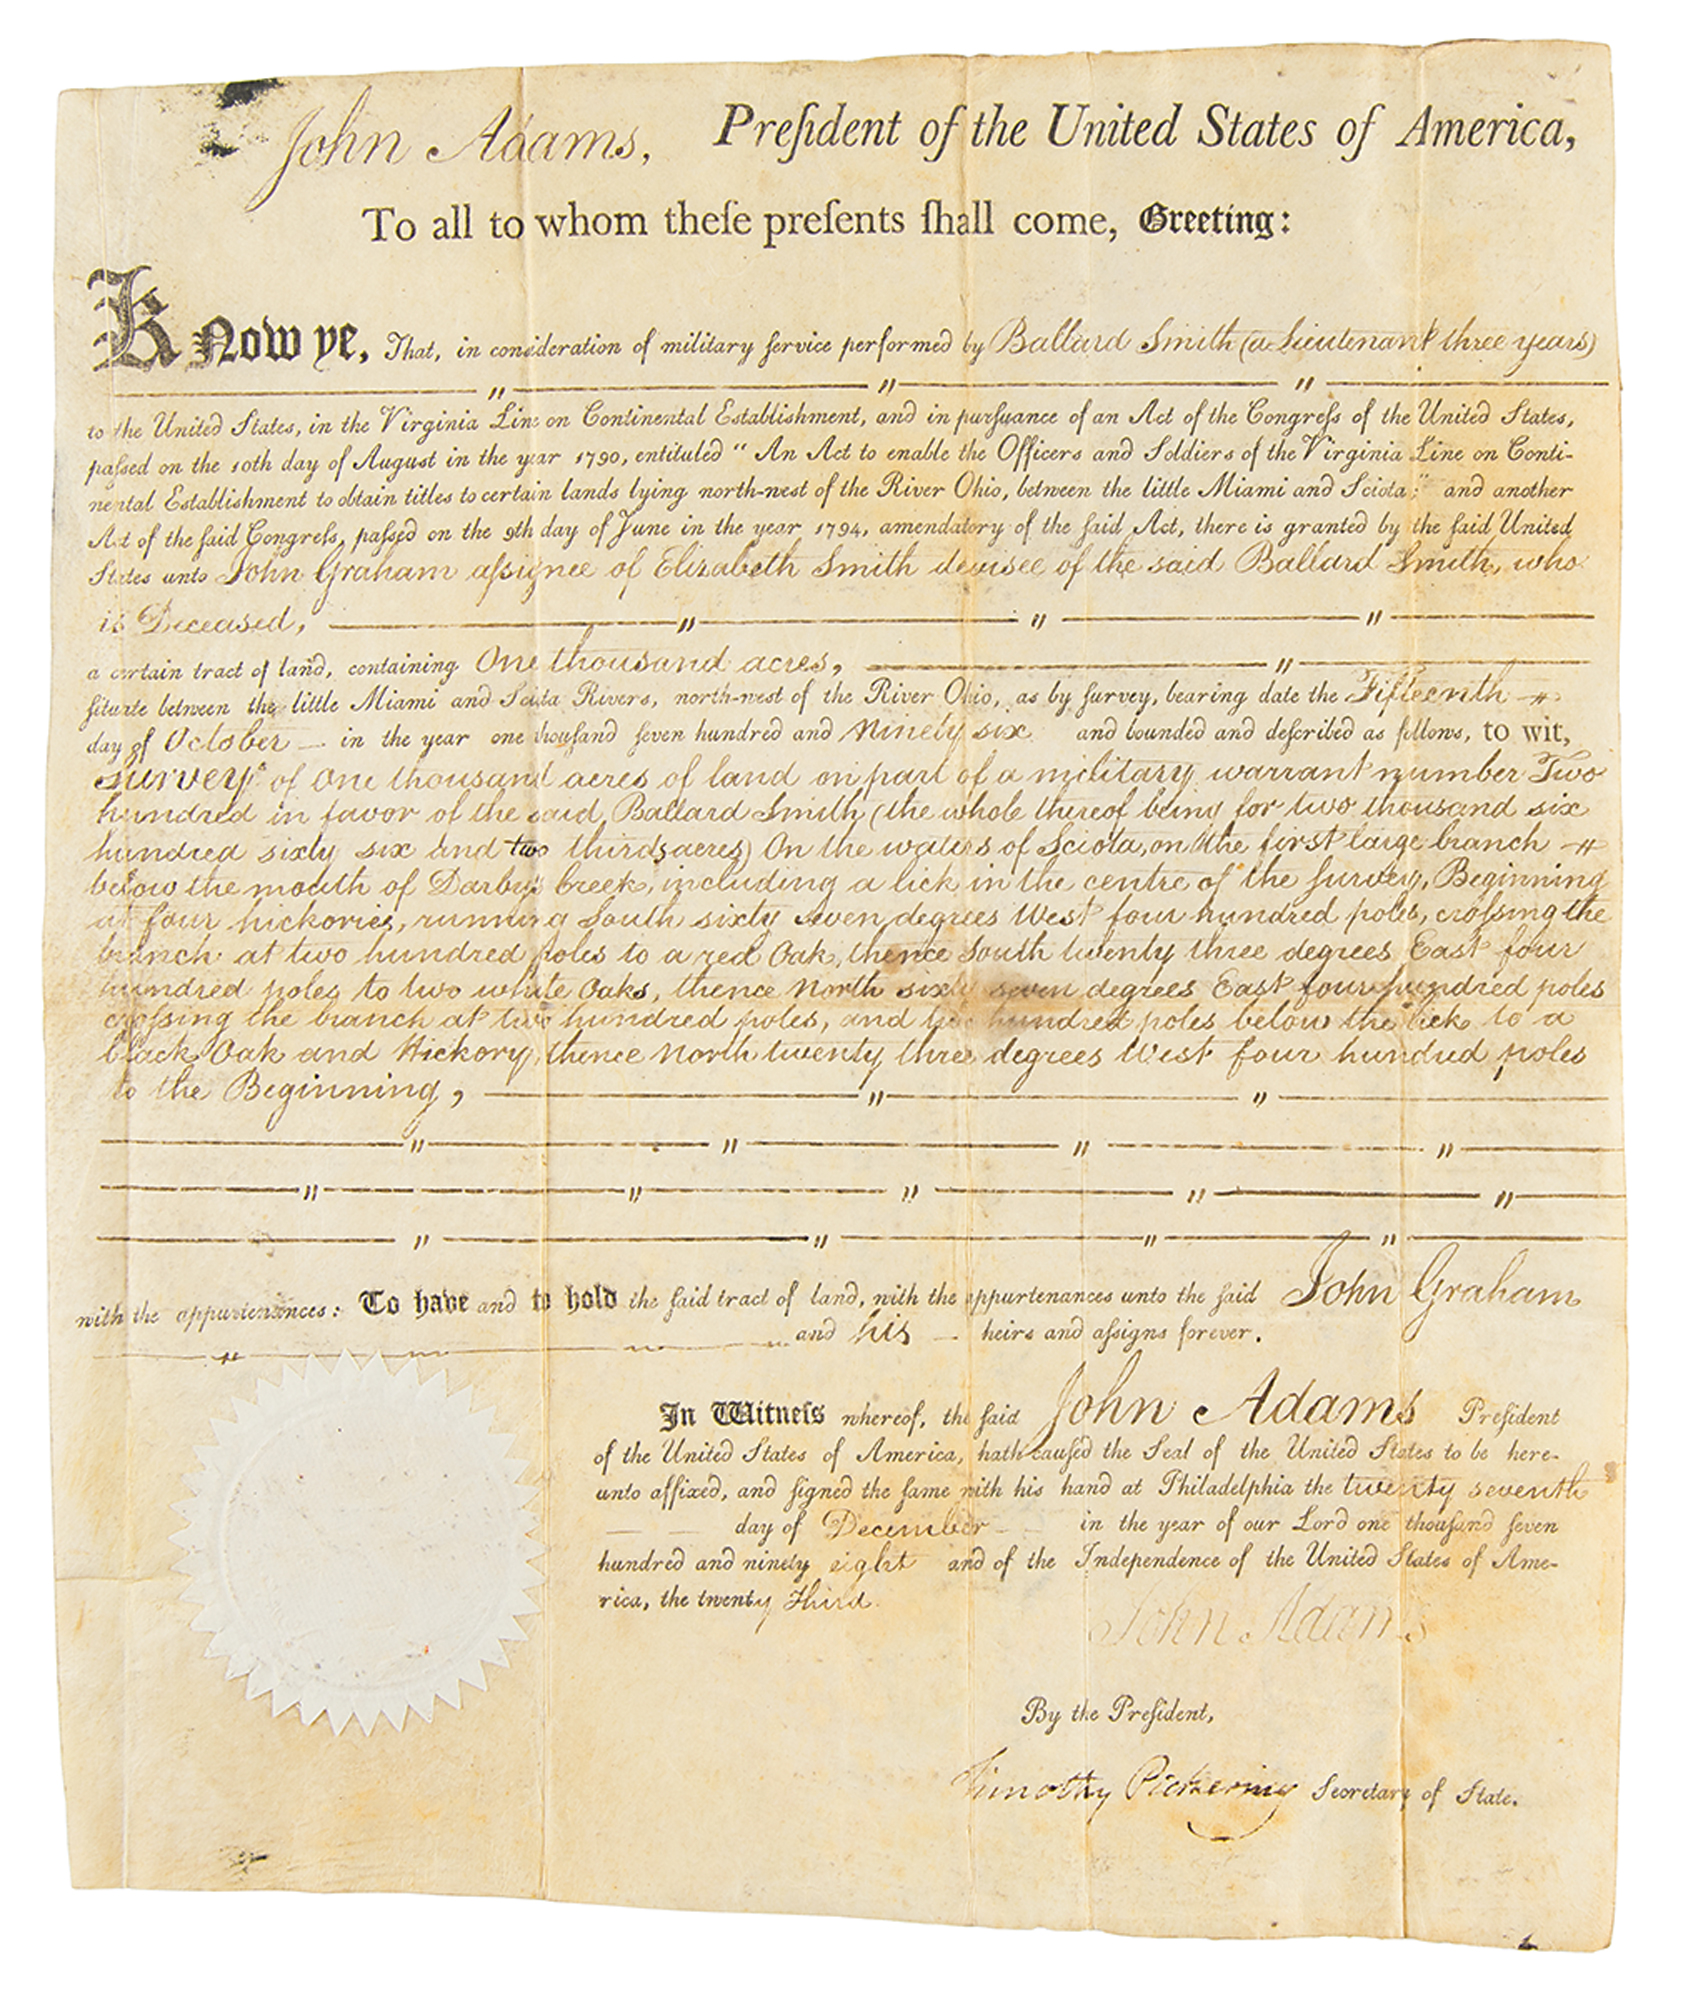 John Adams, Preſident of the United States of America,
To all to whom theſe preſents ſhall come, Greeting:
Know ye, That, in conſideration of military ſervice performed by Ballard Smith (a Lieutenant three years)
to the United States, in the Virginia Line on Continental Establishment, and in purſuance of an Act of the Congreſs of the United States,
paſsed on the 10th day of August in the year 1790, entituled “ An Act to enable the Officers and Soldiers of the Virginia Line on Conti-
nental Establishment to obtain titles to certain lands lying north-west of the River Ohio, between the little Miami and Sciota;” and another
Act of the ſaid Congreſs, paſsed on the 9th day of June in the year 1794, amendatory of the ſaid Act, there is granted by the ſaid United
States unto John Graham aſsignee of Elizabeth Smith devisee of the said Ballard Smith, who
is Deceased,
a certain tract of land, containing One thousand acres,
ſituate between the little Miami and Sciota Rivers, north-west of the River Ohio, as by ſurvey, bearing date the Fifteenth
day of October in the year one thouſand ſeven hundred and Ninety six and bounded and deſcribed as follows, to wit,
Survey of one thousand acres of land on part of a military warrant number Two
hundred in favor of the said Ballard Smith (the whole thereof being for two thousand six
hundred sixty six and two thirds acres) On the waters of Sciota, on the first large branch
below the mouth of Darby's Creek, including a lick in the centre of the survey, Beginning
at four hickories, running South sixty seven degrees West four hundred poles, croſsing the
branch at two hundred poles to a red Oak, thence South twenty three degrees East four
hundred poles to two white Oaks, thence North sixty seven degrees East four hundred poles
croſsing the branch at two hundred poles, and two hundred poles below the lick to a
black Oak and Hickory, thence North twenty three degrees West four hundred poles
to the Beginning,
with the appurtenances: To have and to hold the ſaid tract of land, with the appurtenances unto the ſaid John Graham
and his heirs and aſsigns forever.
In Witneſs whereof, the ſaid John Adams Preſident
of the United States of America, hath cauſed the Seal of the United States to be here-
unto affixed, and ſigned the ſame with his hand at Philadelphia the twenty seventh
day of December in the year of our Lord one thouſand ſeven
hundred and ninety eight and of the Independence of the United States of Ame-
rica, the twenty third.
John Adams
By the Preſident,
Timothy Pickering Secretary of State.